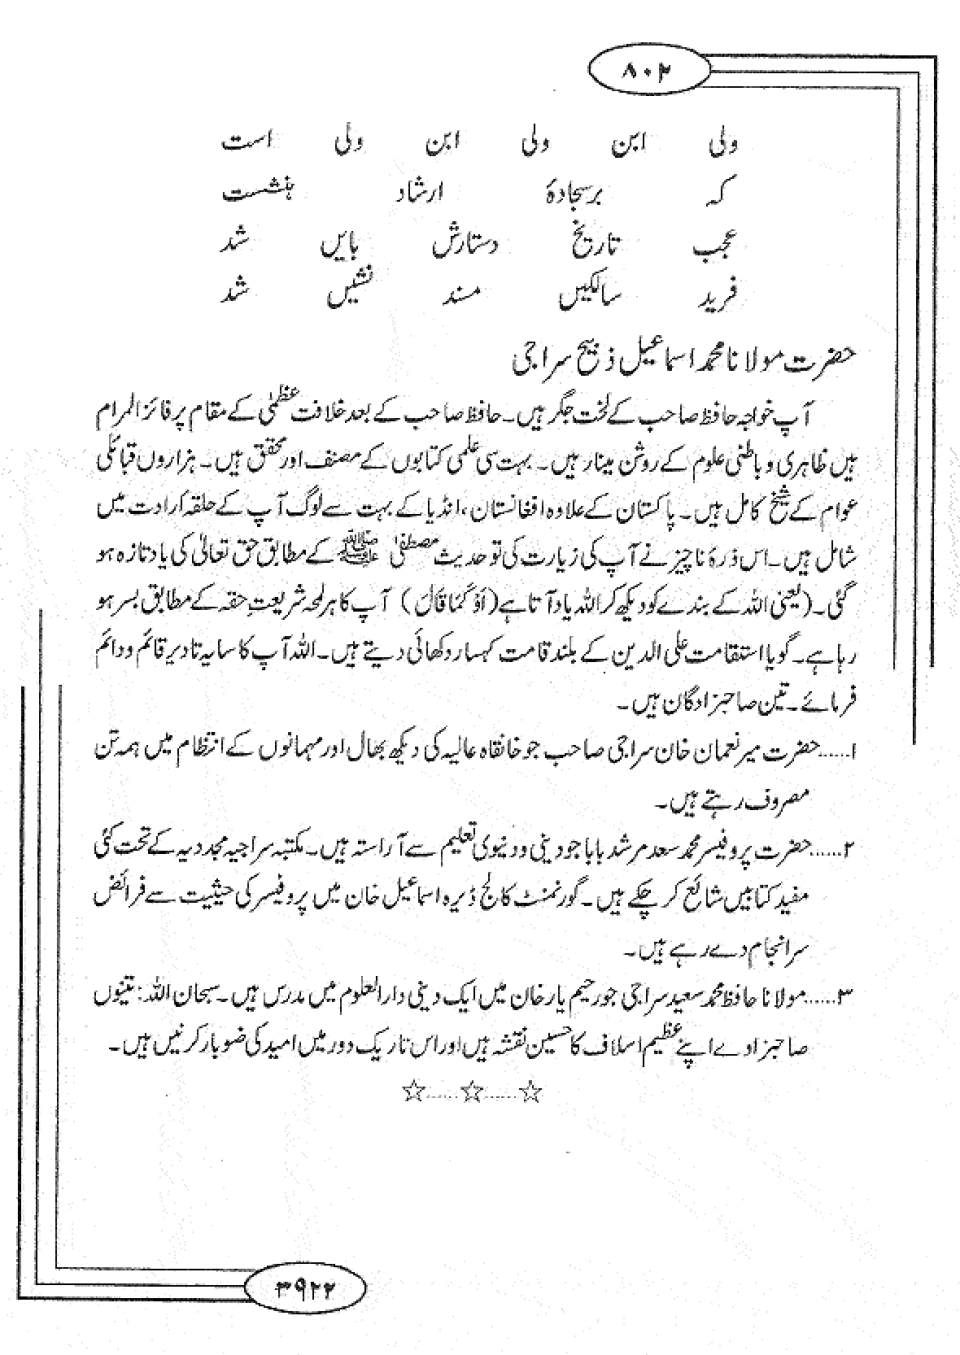 ۸۰۲
ولی ابن ولی ابن ولی است
کہ برسجادۂ ارشاد بنشست
عجب تاریخ دستارش بایں شد
فرید سالکیں مسند نشیں شد
حضرت مولانا محمد اسماعیل ذبیح سراجی
آپ خواجہ حافظ صاحب کے لخت جگر ہیں۔ حافظ صاحب کے بعد خلافت عظمٰی کے مقام پر فائز المرام
ہیں ظاہری و باطنی علوم کے روشن مینار ہیں۔ بہت سی علمی کتابوں کے مصنف اور محقق ہیں۔ ہزاروں قبائلی
عوام کے شیخ کامل ہیں۔ پاکستان کے علاوہ افغانستان، انڈیا کے بہت سے لوگ آپ کے حلقہ ارادت میں
شامل ہیں۔ اس ذرۂ ناچیز نے آپ کی زیارت کی تو حدیث مصطفیٰ ﷺ کے مطابق حق تعالٰی کی یاد تازہ ہو
گئی۔ (یعنی اللہ کے بندے کو دیکھ کر اللہ یاد آتا ہے (اَوْ کَمَا قَالَ) آپ کا ہر لمحہ شریعتِ حقہ کے مطابق بسر ہو
رہا ہے۔ گویا استقامت علی الدین کے بلند قامت کہسار دکھائی دیتے ہیں۔ اللہ آپ کا سایہ تا دیر قائم و دائم
فرمائے۔ تین صاحبزادگان ہیں۔
۱......حضرت میر نعمان خان سراجی صاحب جو خانقاہ عالیہ کی دیکھ بھال اور مہمانوں کے انتظام میں ہمہ تن
مصروف رہتے ہیں۔
۲......حضرت پروفیسر محمد سعد مرشد بابا جو دینی و دنیوی تعلیم سے آراستہ ہیں۔ مکتبہ سراجیہ مجددیہ کے تحت کئی
مفید کتابیں شائع کر چکے ہیں۔ گورنمنٹ کالج ڈیرہ اسماعیل خان میں پروفیسر کی حیثیت سے فرائض
سرانجام دے رہے ہیں۔
۳......مولانا حافظ محمد سعید سراجی جو رحیم یار خان میں ایک دینی دارالعلوم میں مدرس ہیں۔ سبحان اللہ: تینوں
صاحبزادے اپنے عظیم اسلاف کا حسین نقشہ ہیں اور اس تاریک دور میں امید کی ضوبار کرنیں ہیں۔
☆......☆......☆
۳۹۲۲